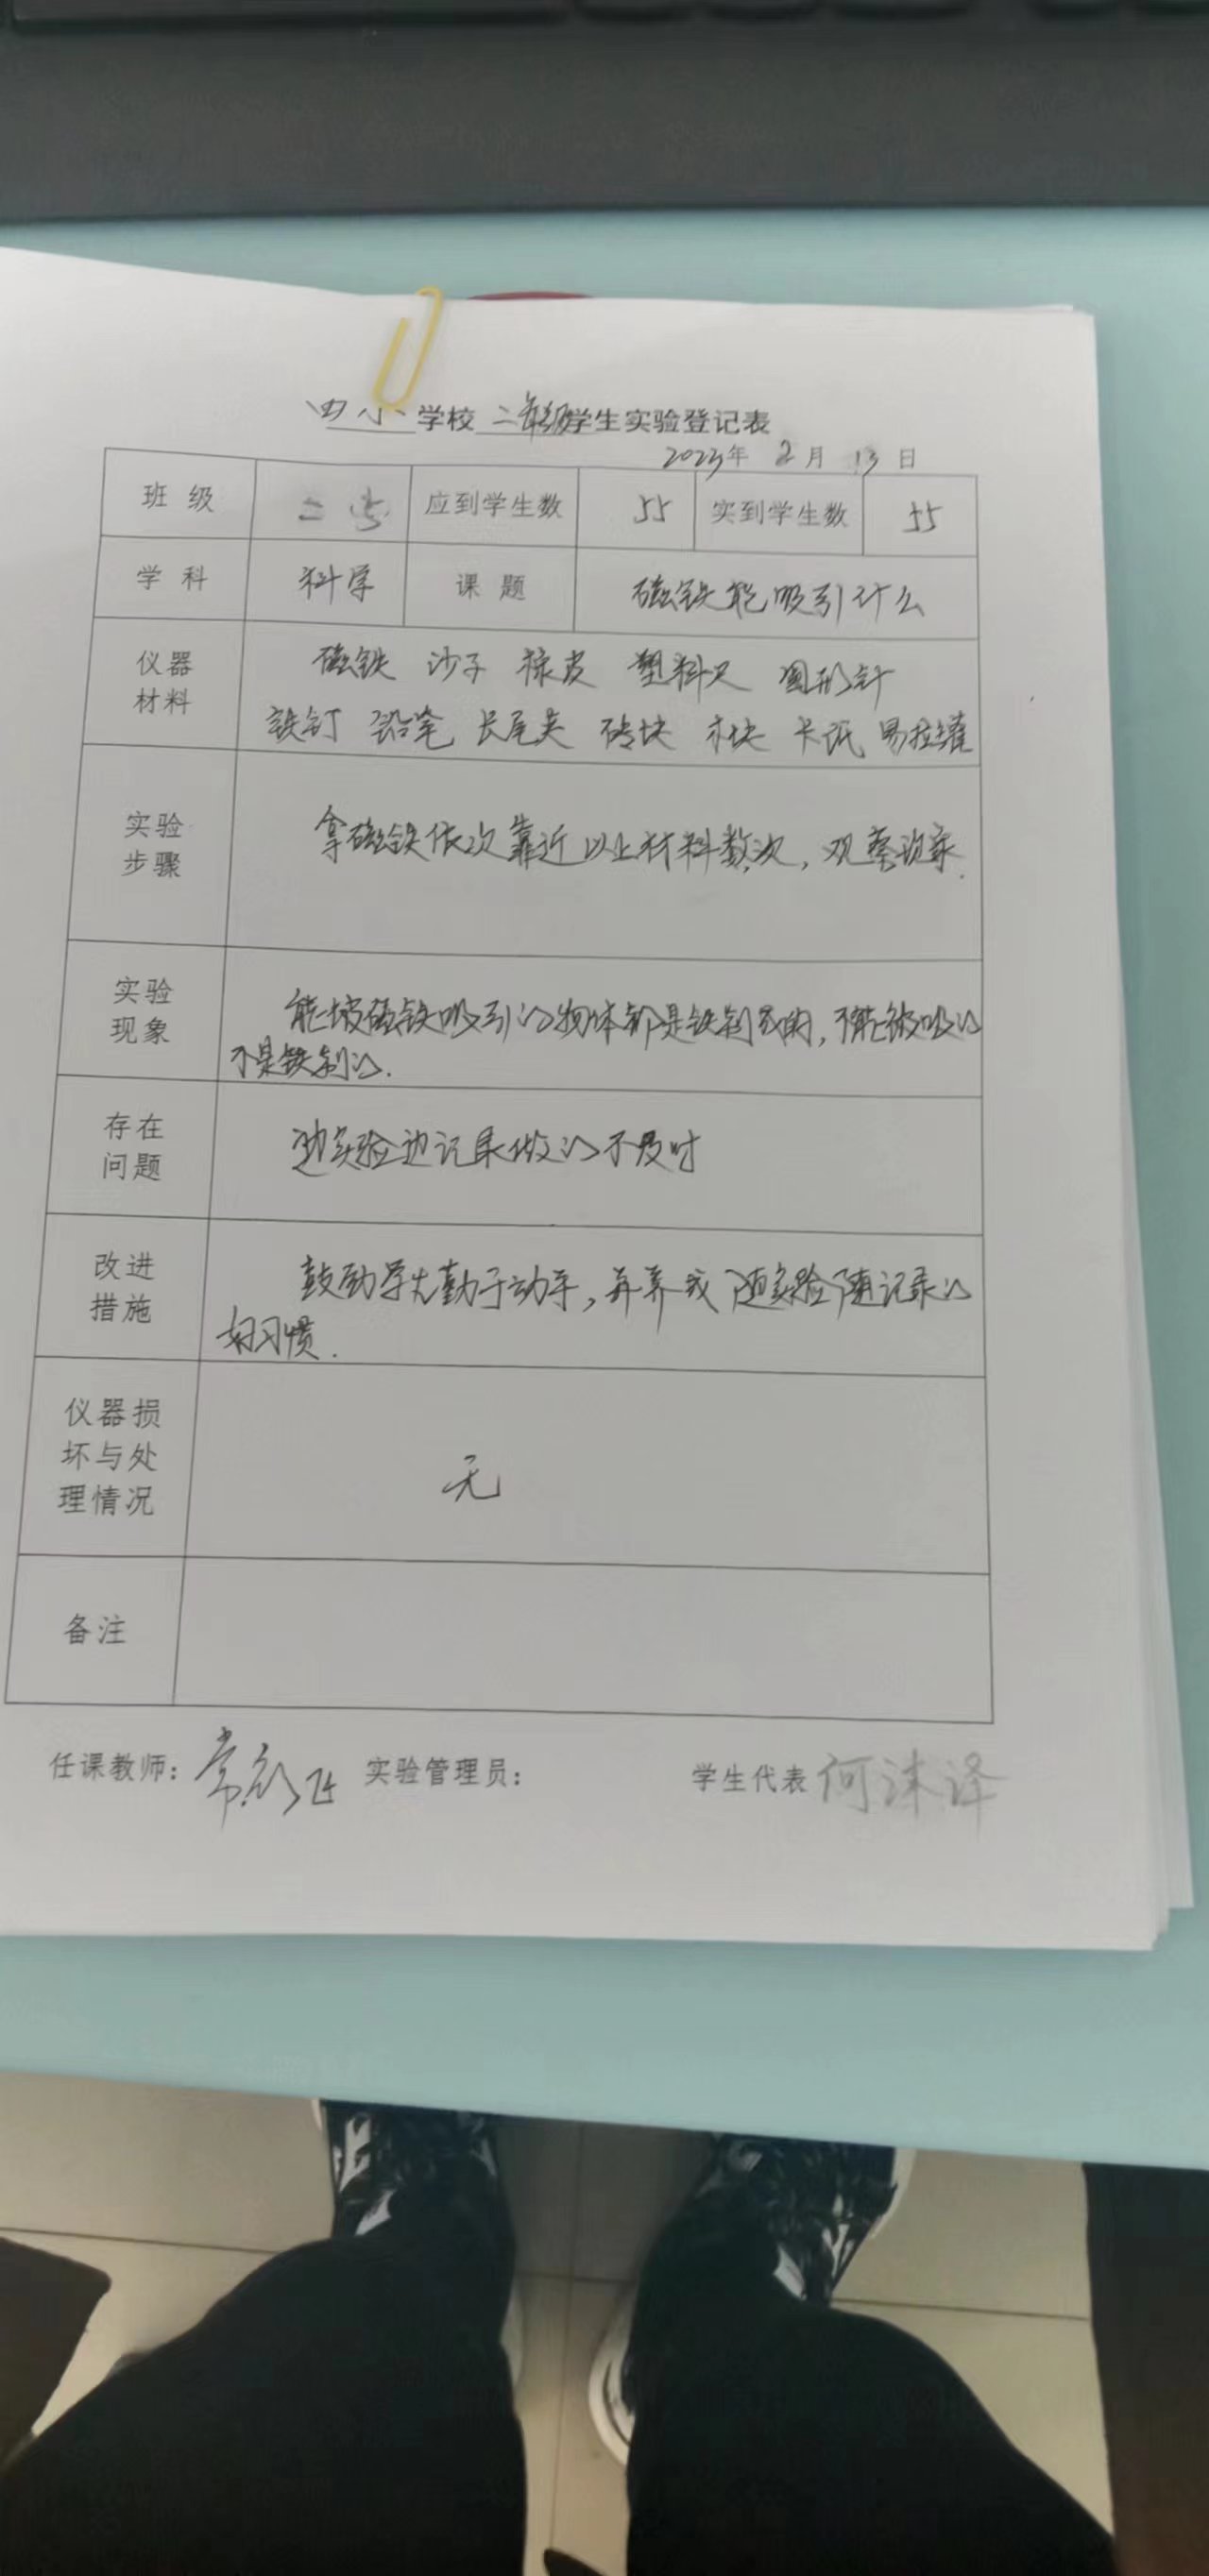 四小学校二年级学生实验登记表
2023年 2月 13日
班级 二 应到学生数 55 实到学生数 55
学科 科学 课题 磁铁能吸引什么
仪器材料 磁铁 沙子 橡皮 塑料尺 圆形针
铁钉 铅笔 长尾夹 砖块 木块 卡纸 易拉罐
实验步骤 拿磁铁依次靠近以上材料数次，观察现象.
实验现象 能被磁铁吸引的物体都是铁制成的，不能被吸的
不是铁制的.
存在问题 边实验边记录做的不及时
改进措施 鼓励学生勤于动手，并养成随实验随记录的
好习惯.
仪器损坏与处理情况 无
备注
任课教师： 常 实验管理员： 学生代表 何沫泽